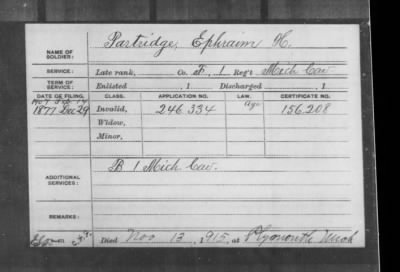 NAME OF SOLDIER: Partridge, Ephraim H.
SERVICE: Late rank, Co. F, 1 Reg't Mich Cav
TERM OF SERVICE: Enlisted 1 Discharged 1
DATE OF FILING. CLASS. APPLICATION NO. LAW. CERTIFICATE NO.
1877 Dec 29 Invalid, 246.334 Age 156.208
Widow,
Minor,
ADDITIONAL SERVICES: B 1 Mich Cav.
REMARKS:
Died Nov 13, 1915, at Plymouth Mich